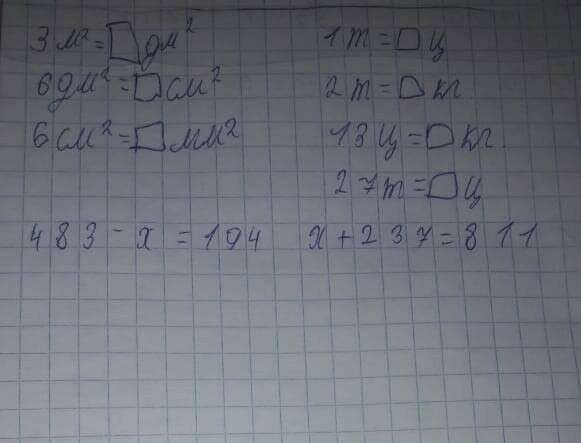 3 м² = □ дм²
6 дм² = □ см²
6 см² = □ мм²
1 т = □ ц
2 т = □ кг.
13 ц = □ кг.
27 т = □ ц
483 - х = 194
х + 237 = 811